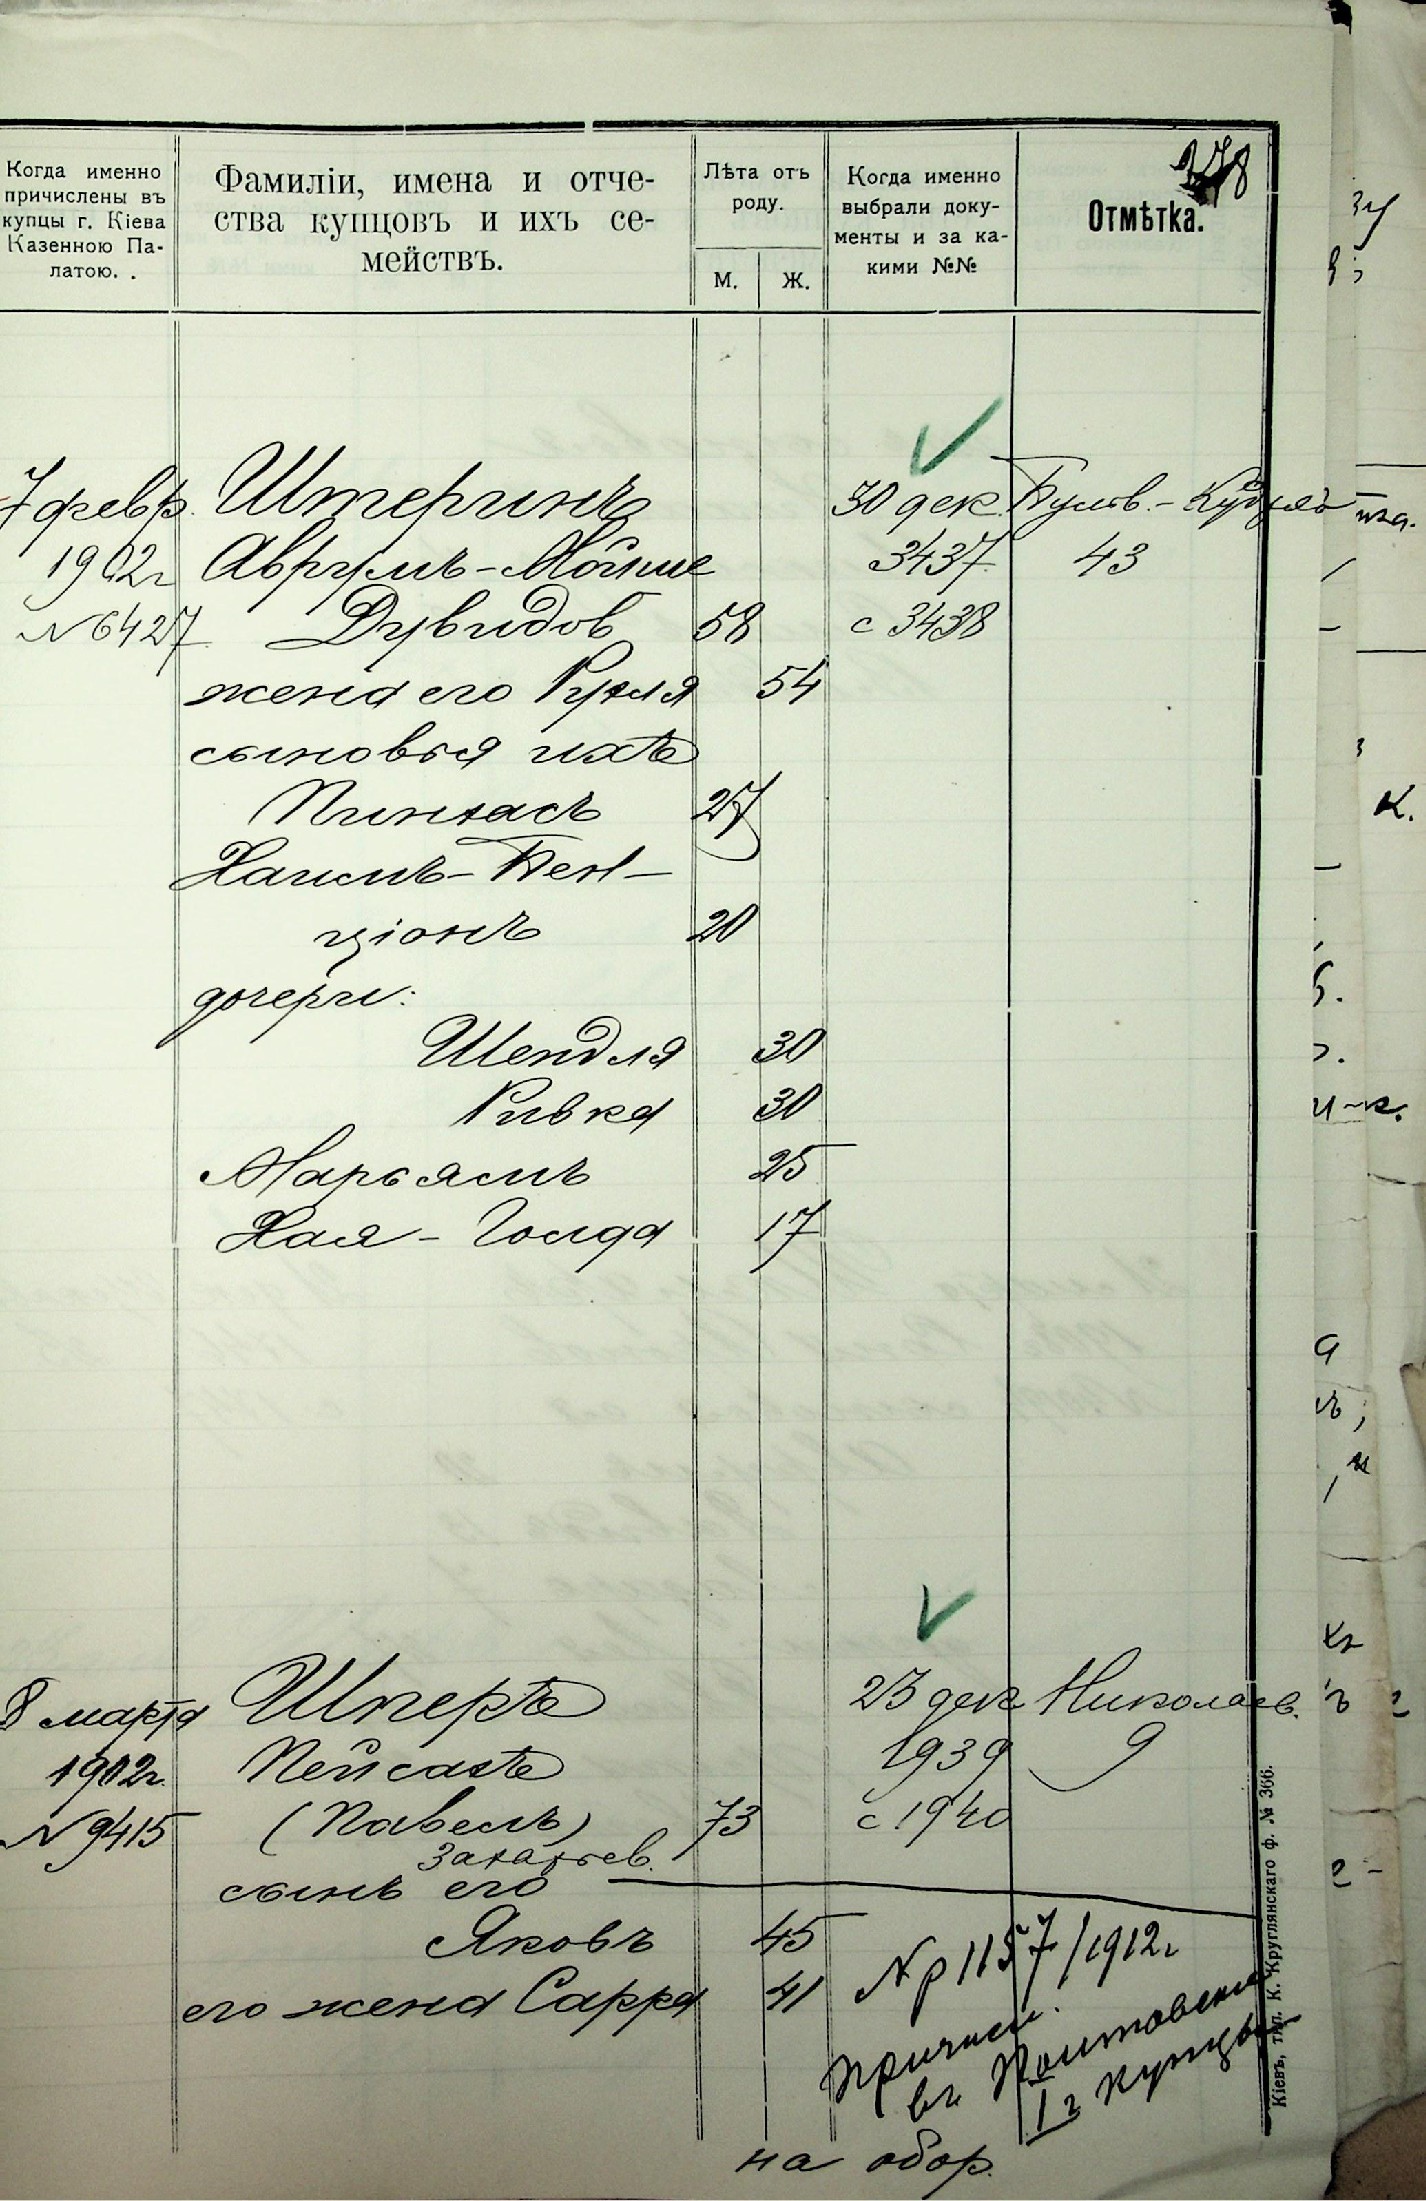 278
Когда именно
причислены въ
купцы г. Кіева
Казенною Па-
латою. .
Фамиліи, имена и отче-
ства купцовъ и ихъ се-
мействъ.
Лѣта отъ
роду.
М.
Ж.
Когда именно
выбрали доку-
менты и за ка-
кими №№
Отмѣтка.
7 февр. Штеринъ 30 дек. Бульв.-Кудряв
1902г Аврумъ-Мойше 3437 43
№ 6427 Дувидов 58 с 3438
жена его Рухля 54
сыновья ихъ
Пинхасъ 27
Хаимъ-Бен-
ціонъ 20
дочери:
Шендля 30
Ривка 30
Марьямъ 25
Хая-Голда 17
8 марта Шперъ 23 дек Николаев.
1902г. Пейсахъ 1939 9
№ 9415 (Павелъ) 73 с 1940
Захарьев.
сынъ его
Яковъ 45
его жена Сарра 41
№ р 1157/1912г
причисл.
въ
I г купцы
на обор.
Кіевъ, тип. К. Круглянскаго ф. № 366.